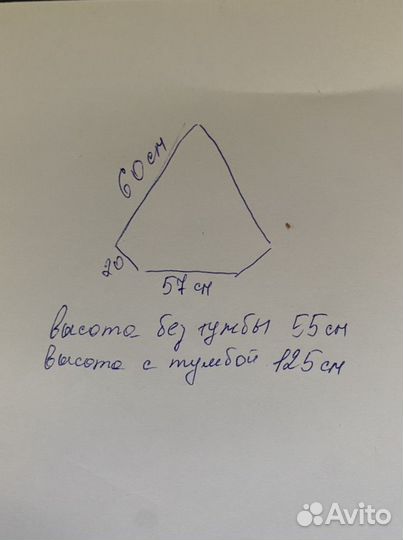 60см
20
57см
высота без тумбы 55см
высота с тумбой 125см
Avito